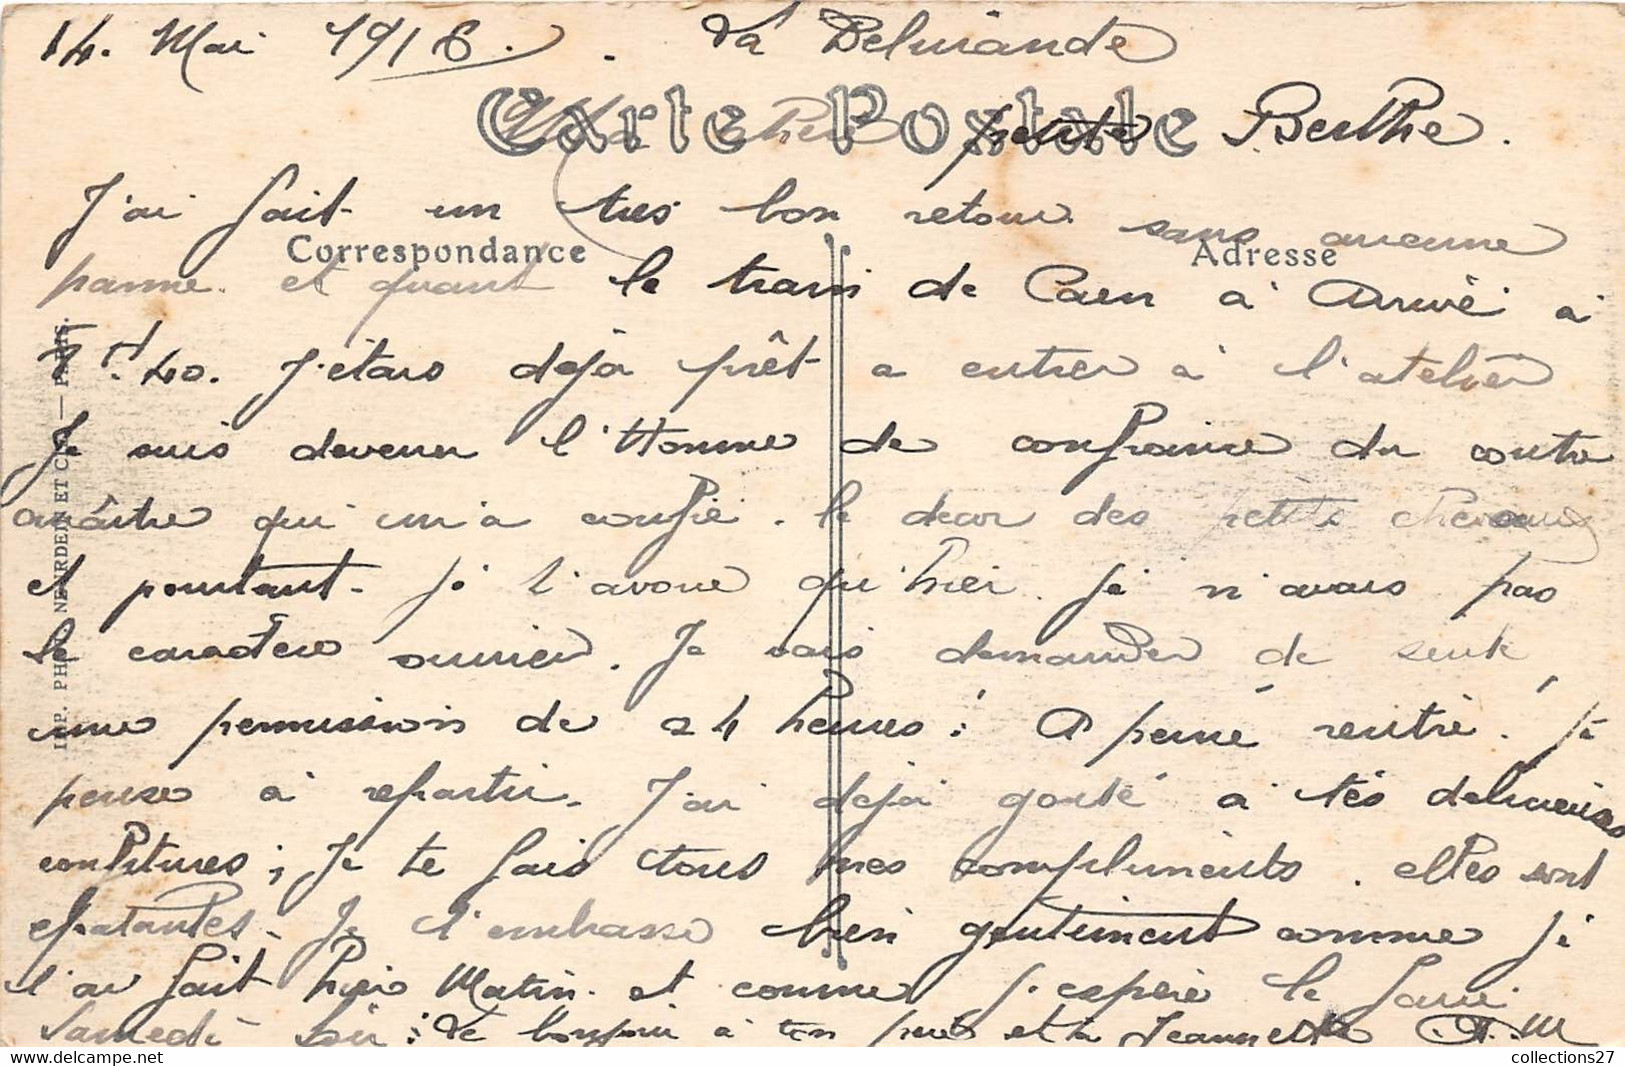 14. Mai 1918. La Delivrande
Carte Postale
Ma chère petite Berthe.
J'ai fait un tres bon retour sans aucune
Correspondance
Adresse
panne. et quant le train de Caen a Arrivé à
7h.40. J'étais déjà prêt a entrer à l'atelier
Je suis devenu l'Homme de confiance du contre
maître qui m'a confié. le decor des petits chevaux
et pourtant. je t'avoue qu'hier je n'avais pas
le caractère ouvrier. Je vais demander de suite
une permission de 24 heures: A peine rentré. je
pense à repartir. J'ai déjà gouté à tes delicieuses
confitures; Je te fais tous mes compliments. elles sont
epatantes. Je t'embrasse bien gentiment comme je
l'ai fait hier Matin. et comme j'espère le faire
Samedi soir: Le bonjour à ton père et à Jeannette M
IMP. PHOT. NEURDEIN ET Cie. — PARIS.
collections27